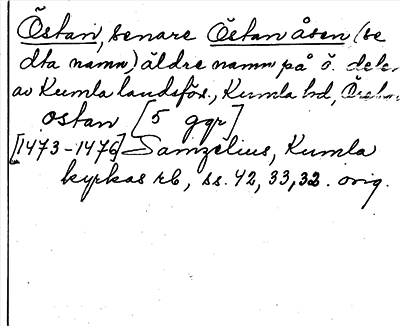 Östan, senare Östanåsen (se
dta namn) äldre namn på ö. delen
av Kumla landsförs., Kumla hd, Örebro
ostan [5 ggr]
[1473-1476] Samzelius, Kumla
kyrkas rb, ss. 42, 33, 32. orig.